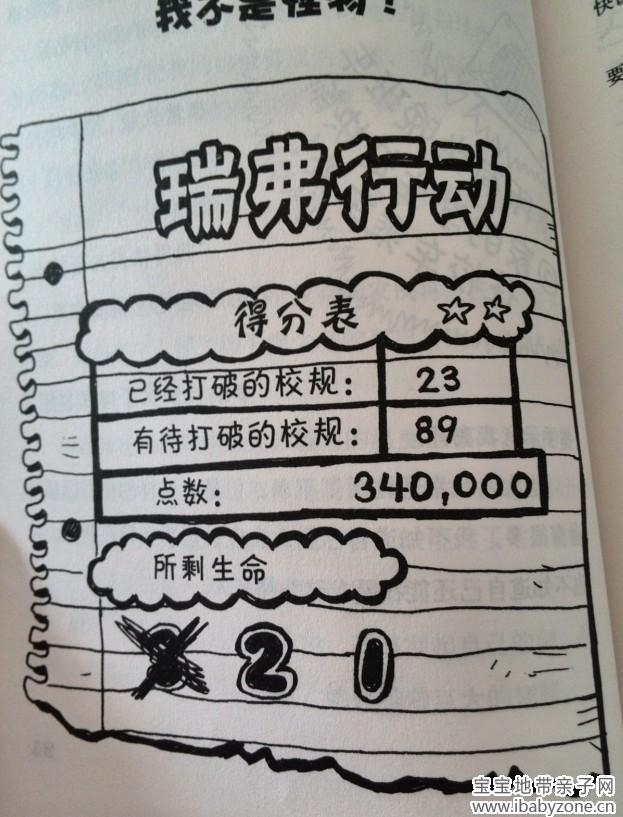 我不是怪物！
瑞弗行动
得分表
已经打破的校规： 23
有待打破的校规： 89
点数： 340,000
所剩生命
3 2 1
要
宝宝地带亲子网
www.ibabyzone.cn